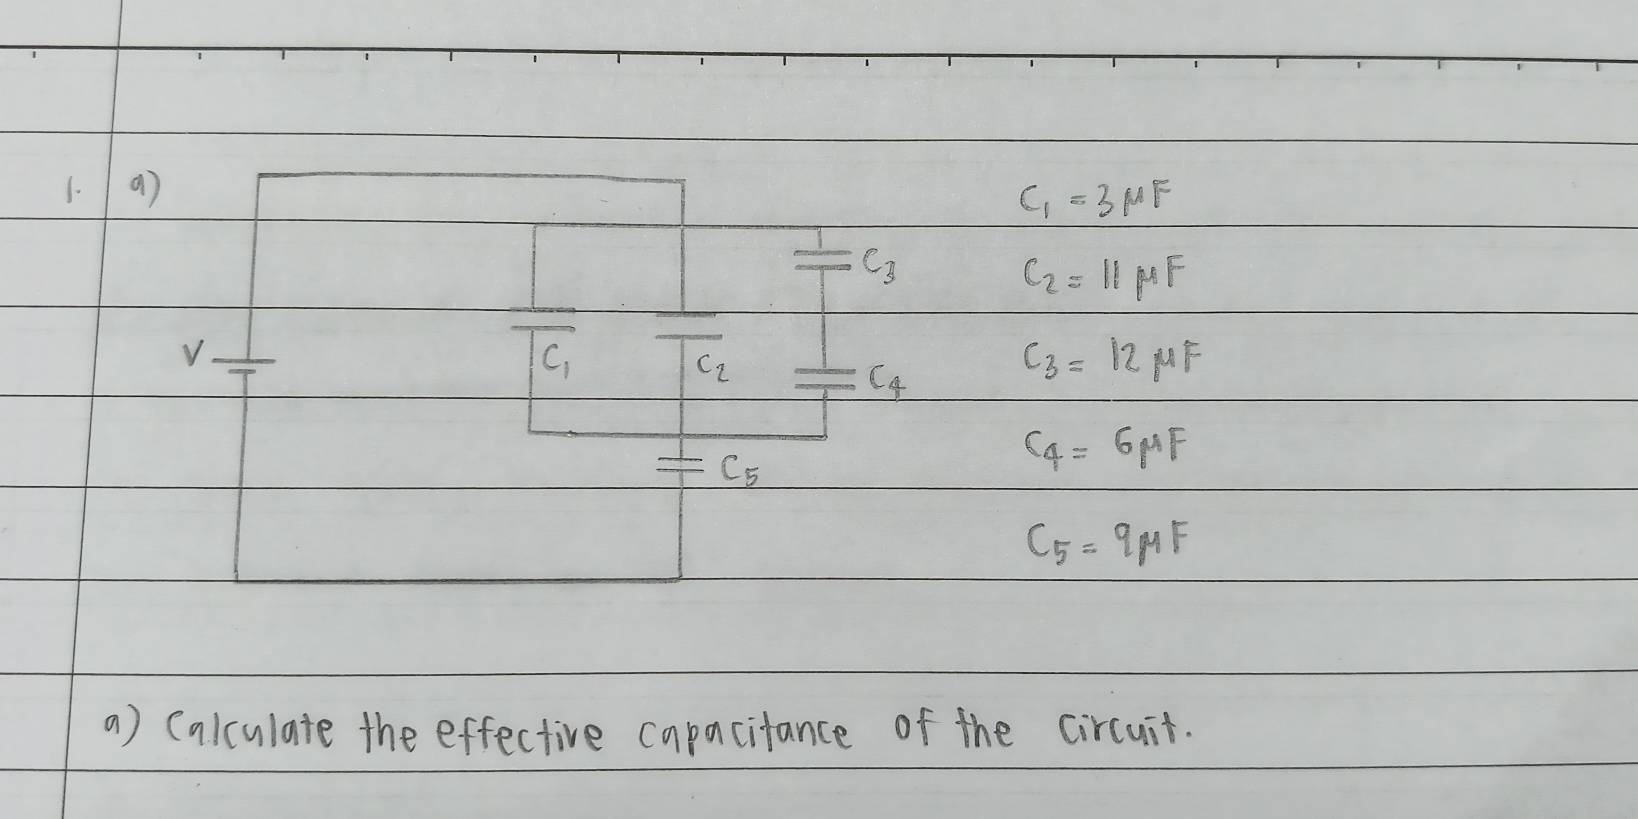 1. a)
C₁ = 3 μF
C₃
C₂ = 11 μF
V
C₁
C₂
C₄
C₃ = 12 μF
C₄ = 6 μF
C₅
C₅ = 9 μF
a) Calculate the effective capacitance of the circuit.